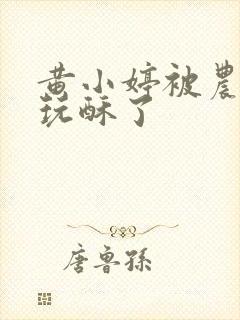 黄小婷被農
玩酥了
唐魯孫